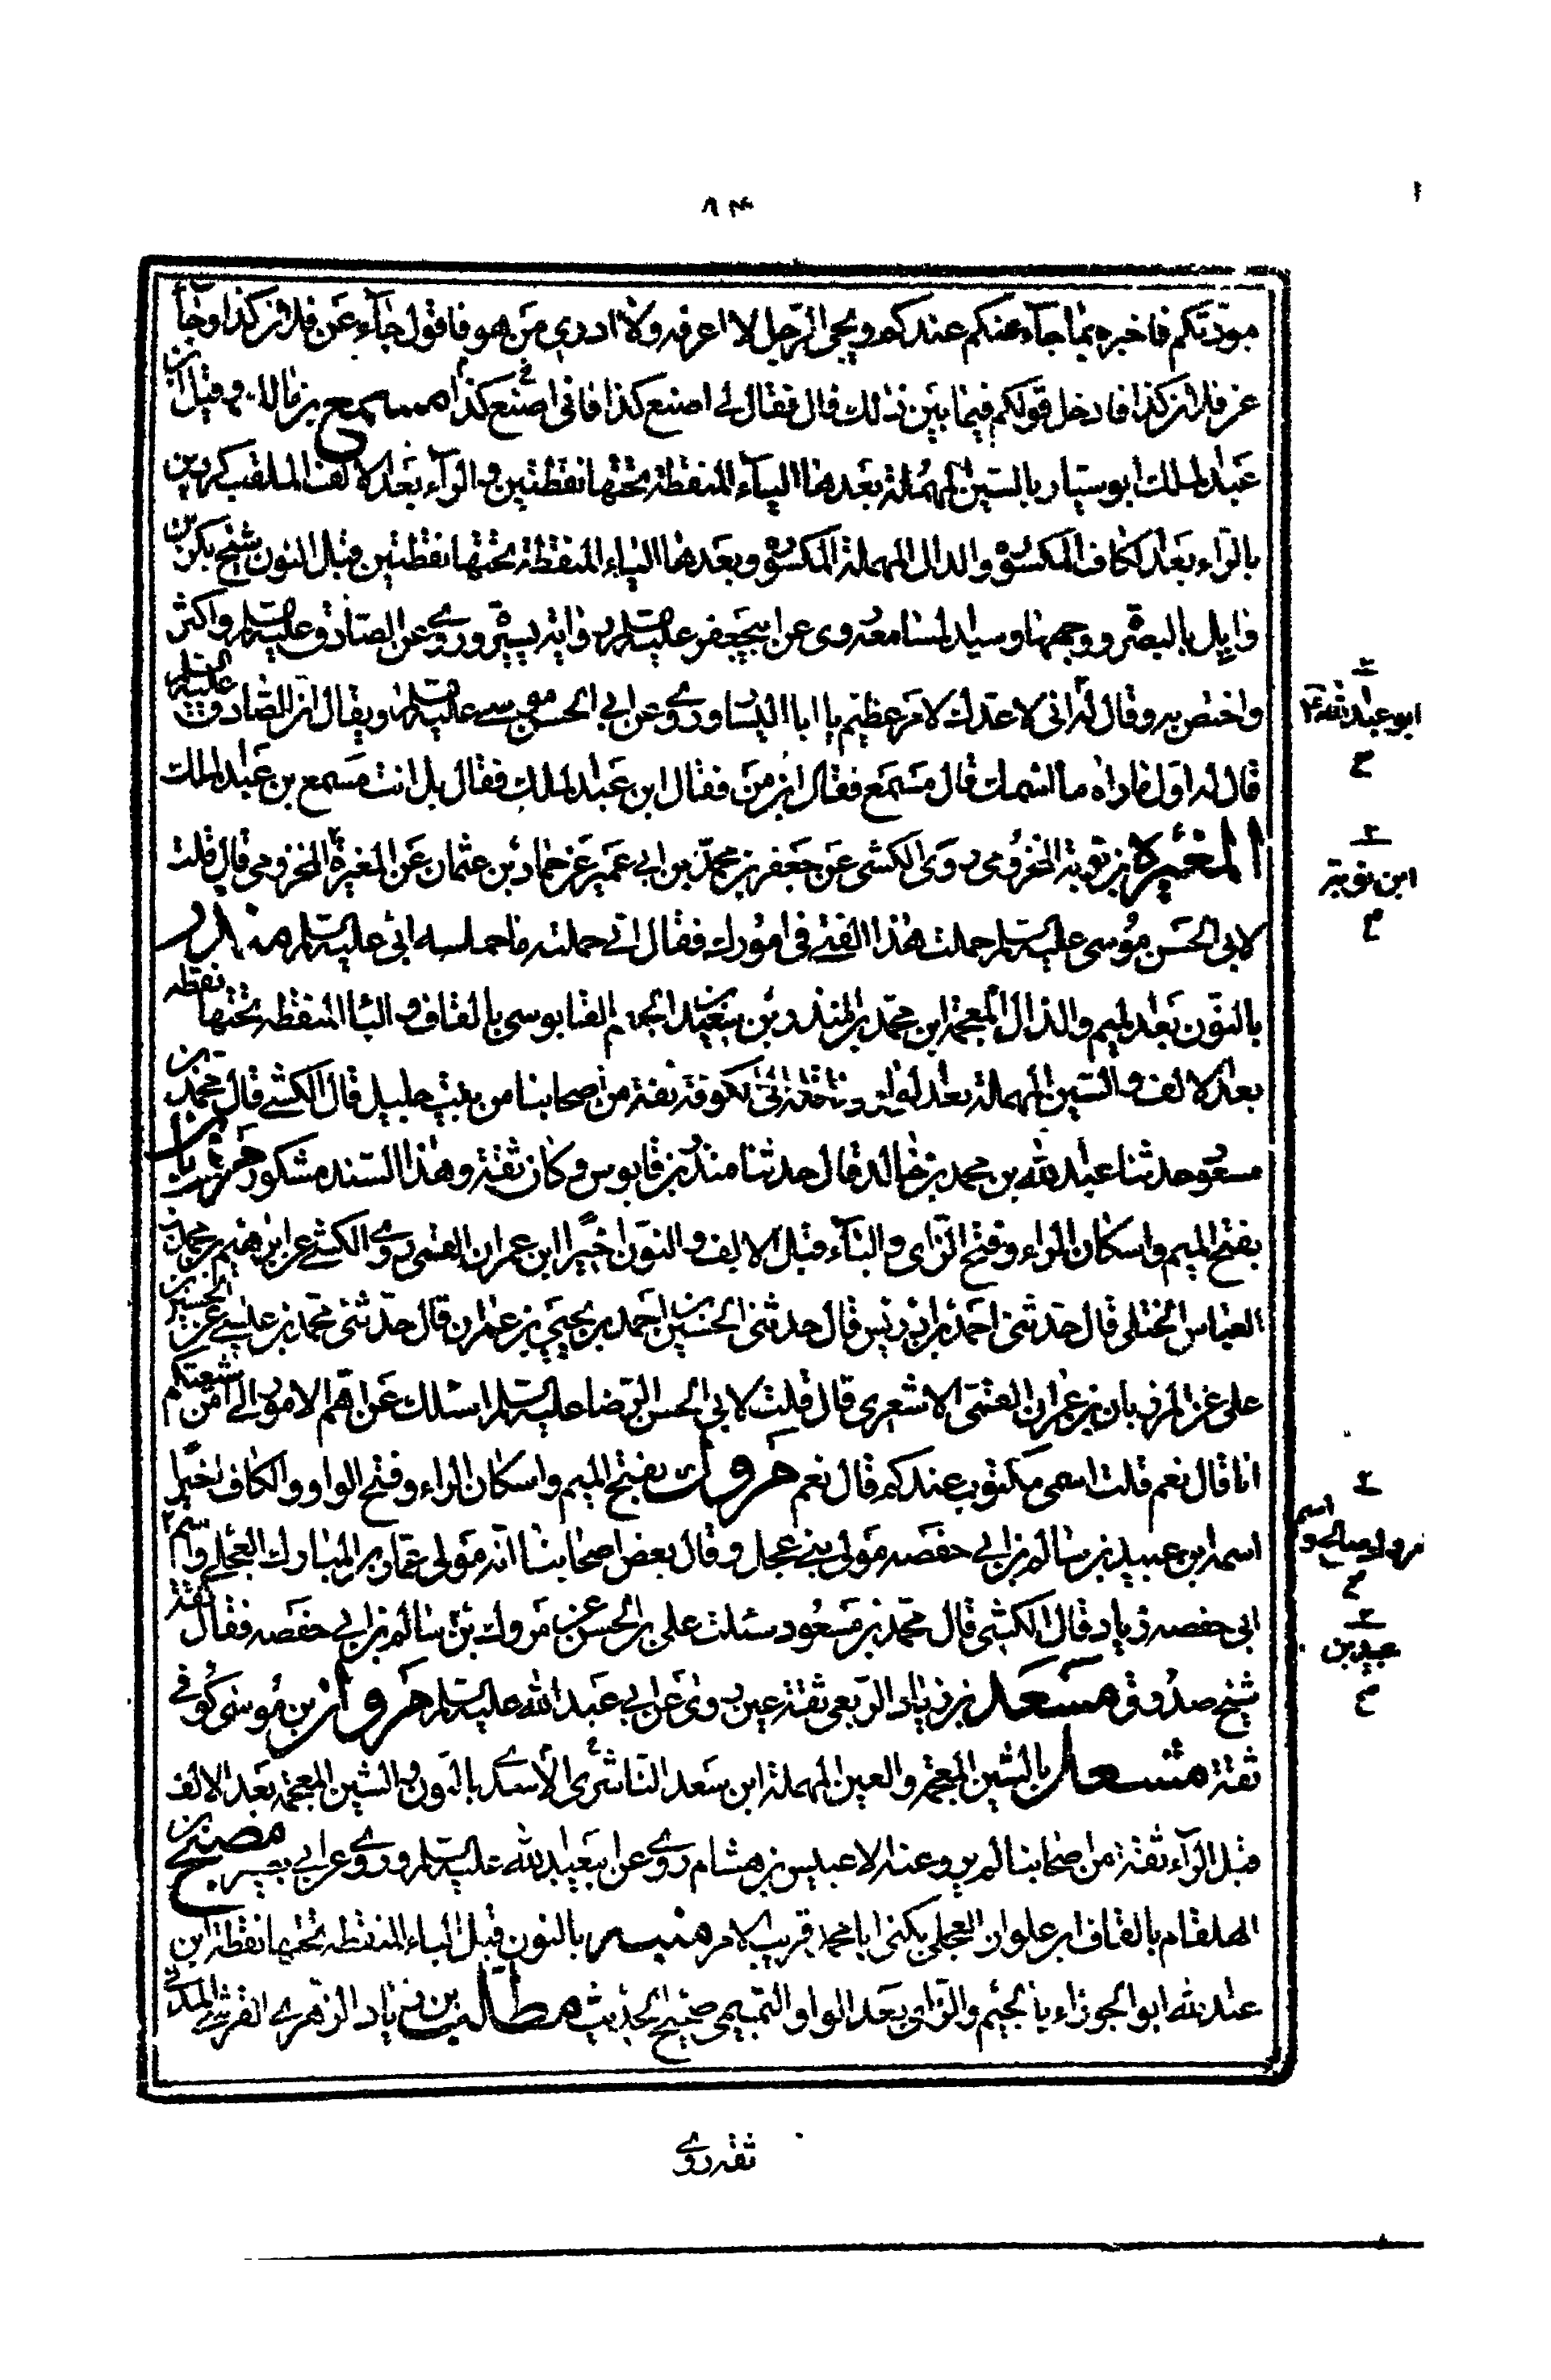 ۸۴
مودّتكم فاخبره بما جاء عنكم عندكم ويجئ الرجل لا اعرفه ولا ادري من هو فاقول جاء عن فلان كذا وجاء
عن فلان كذا فادخل قولكم فيما بين ذلك قال فقال لي اصنع كذا فاني اصنع كذا مسمع بن مالك وقيل ابن
عبد الملك ابو سيار بالسين المهملة بعدها الياء المنقطة تحتها نقطتين والراء بعد الالف الملقب كردين
بالراء بعد الكاف المكسورة والدال المهملة المكسورة وبعدها الياء المنقطة تحتها نقطتين قبل النون شيخ بكر بن
وايل بالبصرة ووجهها وسيد المسامعة روى عن ابي جعفر عليه السلام رواية يسيرة وروى عن الصادق عليه السلام واكثر
واختص به وقال له اني لاعدك لامر عظيم يا ابا السيار وروى عن ابي الحسن موسى عليه السلام ويقال ان الصادق عليه السلام
قال له اول ما راه ما اسمك قال مسمع فقال ابن من فقال ابن عبد الملك فقال بل انت مسمع بن عبد الملك
المغيرة بن توبة المخزومي روى الكشي عن جعفر بن محمد بن ابي عمير عن حماد بن عثمان عن المغيرة المخزومي قال قلت
لابي الحسن موسى عليه السلام حملت هذا الفتى في امورك فقال اني حملته ما حملنيه ابي عليه السلام منذر
بالنون بعد الميم والذال المعجمة ابن محمد بن المنذر بن سعيد بن ابي الجهم القابوسي بالقاف والباء المنقطه تحتها نقطه
بعد الالف والسين المهملة بعد الواو ثقة من اصحابنا من بيت جليل قال الكشي قال محمد بن
مسعود حدثنا عبد الله بن محمد بن خالد قال حدثنا منذر بن قابوس وكان ثقة وهذا السند مشكور مرزبان
بفتح الميم واسكان الراء وفتح الزاى والباء قبل الالف والنون اخيرا ابن عمران القمي روى الكشي عن ابرهيم بن محمد بن
العباس الختلي قال حدثني احمد بن ادريس قال حدثني الحسين بن احمد بن يحيى بن عمران قال حدثني محمد بن عيسى عن الحسين بن
على عن المرزبان بن عمران القمى الاشعرى قال قلت لابي الحسن الرضا عليه السلام اسئلك عن اهم الامور الي امن شيعتكم
انا قال نعم قلت اسمى مكتوب عندكم قال نعم مروك بفتح الميم واسكان الراء وفتح الواو والكاف اخيرا
اسمه ابن عبيد بن سالم بن ابي حفصه مولى بني عجل وقال بعض اصحابنا انه مولى عمار بن المبارك العجلي واسم
ابى حفصه زياد قال الكشي قال محمد بن مسعود سئلت على بن الحسن عن مروك بن عبيد بن سالم بن ابي حفصه فقال ثقة
شيخ صدوق مسعدة بن زياد الربعى ثقة عين روى عن ابي عبد الله عليه السلام مروان بن موسى كوفي
ثقة مشعل بالشين المعجمة والعين المهملة ابن سعد الناشرى الاسدي بالنون والشين المعجمة بعد الالف
قبل الراء ثقة من اصحابنا لم يرو عنه الا عبيس بن هشام روى عن ابي عبد الله عليه السلام وروى عن ابي بصير مصبح بن
الهلقام بالقاف ابن علوان العجلى يكنى ابا محمد قريب الامر منبه بالنون قبل الباء المنقطه تحتها نقطة ابن
عبد الله ابو الجوزاء بالجيم والزاى بعد الواو التميمى صحيح الحديث مطلب بن زياد الزهرى القرشي المدني
ثقه روى
ابو عبد الله
ابن توبة
مروك صالح و اسم
عبيد بن